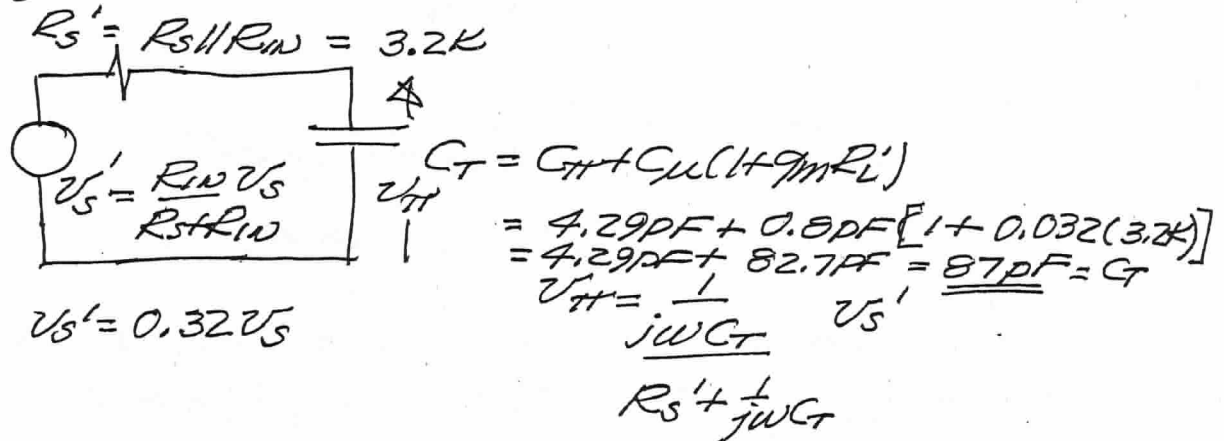 Rs' = Rs//RIN = 3.2K
vs' = RIN vs / Rs+RIN
vπ
CT = Cπ + Cμ(1+gmRL')
= 4.29pF + 0.8pF[1 + 0.032(3.2K)]
= 4.29pF + 82.7pF = 87pF = CT
vπ = 1/jωCT / Rs' + 1/jωCT vs'
vs' = 0.32vs